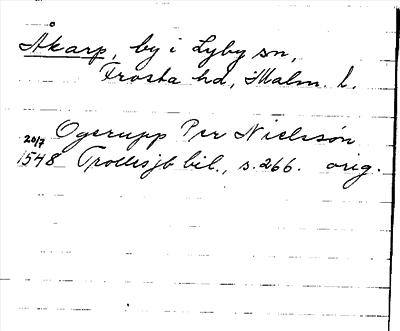 Åkarp, by i Lyby sn,
Frosta hd, Malm. l.
Ogerupp Per Nielssøn
20/7
1548 Trollesjb bil., s. 266. orig.